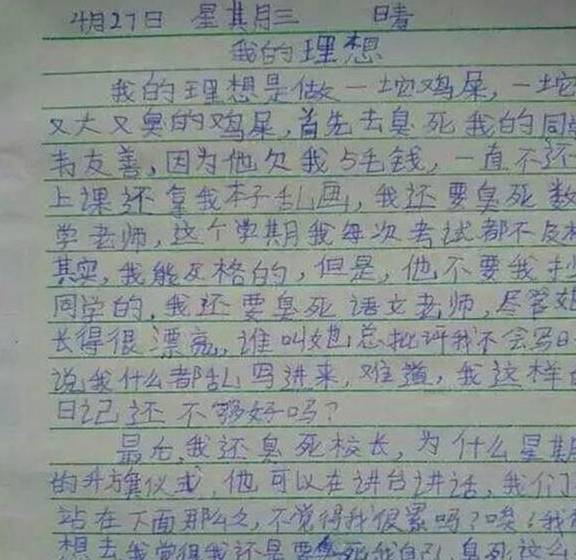 4月27日 星其月三 晴
我的理想
我的理想是做一坨鸡屎,一坨
又大又臭的鸡屎,首先去臭死我的同
韦友善,因为他欠我5毛钱,一直不还
上课还拿我本子乱画,我还要臭死数
学老师,这个学期我每次考试都不及
其实,我能及格的,但是,他不要我抄
同学的,我还要臭死语文老师,尽管她
长得很漂亮,谁叫她总批评我不会写日
说我什么都乱写进来,难道,我这样
日记还不够好吗?
最后,我还臭死校长,为什么星期
的升旗仪式,他可以在讲台讲话,我们
站在下面那么久,不觉得我很累吗?唉!我
想去我觉得我还是要臭死我自己,臭死这么